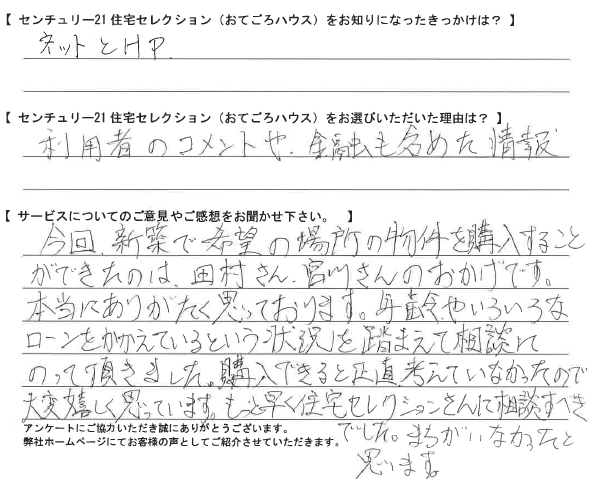 【 センチュリー21 住宅セレクション（おてごろハウス）をお知りになったきっかけは？ 】
ネットとHP.
【 センチュリー21 住宅セレクション（おてごろハウス）をお選びいただいた理由は？ 】
利用者のコメントや、金融も含めた情報
【 サービスについてのご意見やご感想をお聞かせ下さい。 】
今回、新築で希望の場所の物件を購入すること
ができたのは、田村さん、宮川さんのおかげです。
本当にありがたく思っております。年齢やいろいろな
ローンをかかえているという状況を踏まえて相談に
のって頂きました。購入できると正直、考えていなかったので
大変嬉しく思っています。もっと早く住宅セレクションさんに相談すべき
でした。まちがいなかったと
思います。
アンケートにご協力いただき誠にありがとうございます。
弊社ホームページにてお客様の声としてご紹介させていただきます。